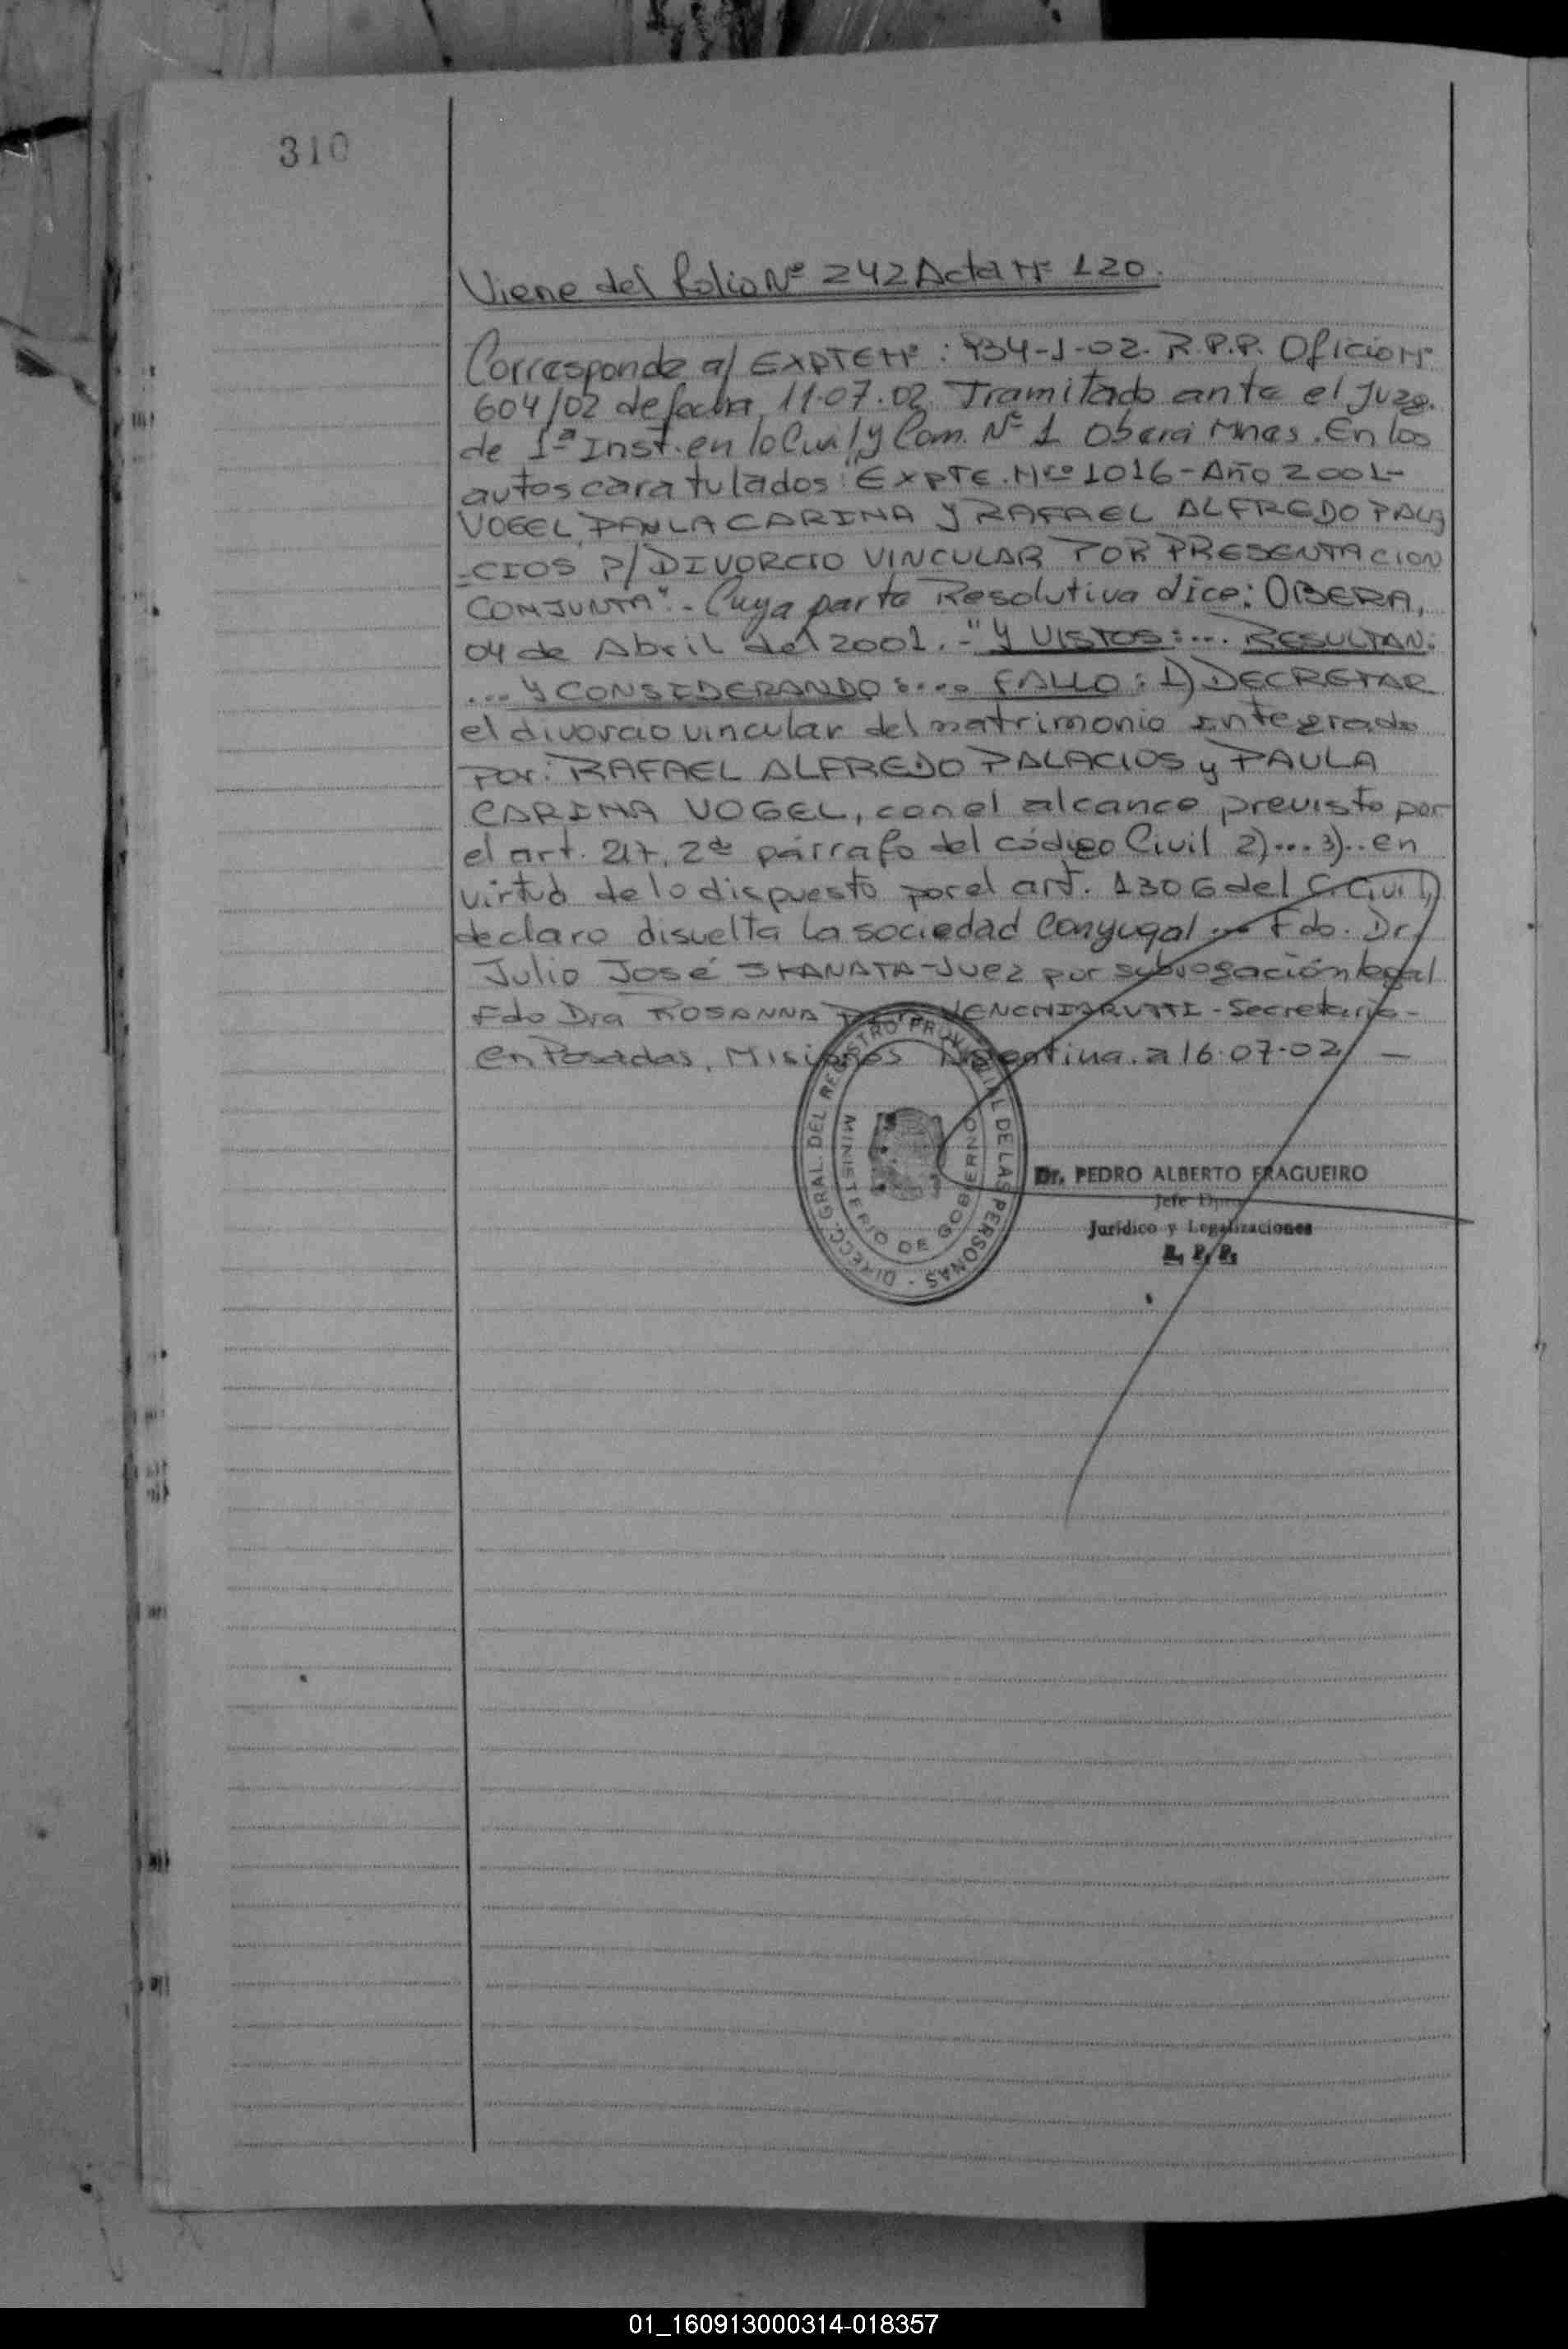 310
Viene del folio Nº 242 Acta Nº 120.
Corresponde al EXPTE Nº: 934-J-02. R.P.P. Oficio Nº
604/02 de fecha 11.07.02. Tramitado ante el Juzg.
de 1ª Inst. en lo Civil y Com. Nº 1 Oberá Mnes. En los
autos caratulados: "EXPTE. Nº 1016 - Año 2001-
VOGEL, PAULA CARINA Y RAFAEL ALFREDO PALA
=CIOS P/ DIVORCIO VINCULAR POR PRESENTACION
CONJUNTA".- Cuya parte Resolutiva dice: OBERA,
04 de Abril del 2001.-"Y VISTOS:... RESULTAN:
...Y CONSIDERANDO:.... FALLO: 1) DECRETAR
el divorcio vincular del matrimonio integrado
Por: RAFAEL ALFREDO PALACIOS y PAULA
CARINA VOGEL, con el alcance previsto por
el art. 217, 2do párrafo del código Civil 2)...3)..en
virtud de lo dispuesto por el art. 1306 del C. Civil,
declaro disuelta la sociedad Conyugal ... Fdo. Dr.
Julio José SKANATA - Juez por subrogación legal
Fdo Dra ROSANNA VENCHIARUTTI - Secretaria -
en Posadas, Misiones Argentina. a 16.07.02 —
DIRECC. GRAL. DEL REGISTRO PROVINCIAL DE LAS PERSONAS -
MINISTERIO DE GOBIERNO
Dr. PEDRO ALBERTO FRAGUEIRO
Jefe Dpto.
Jurídico y Legalizaciones
R. P. P.
01_160913000314-018357